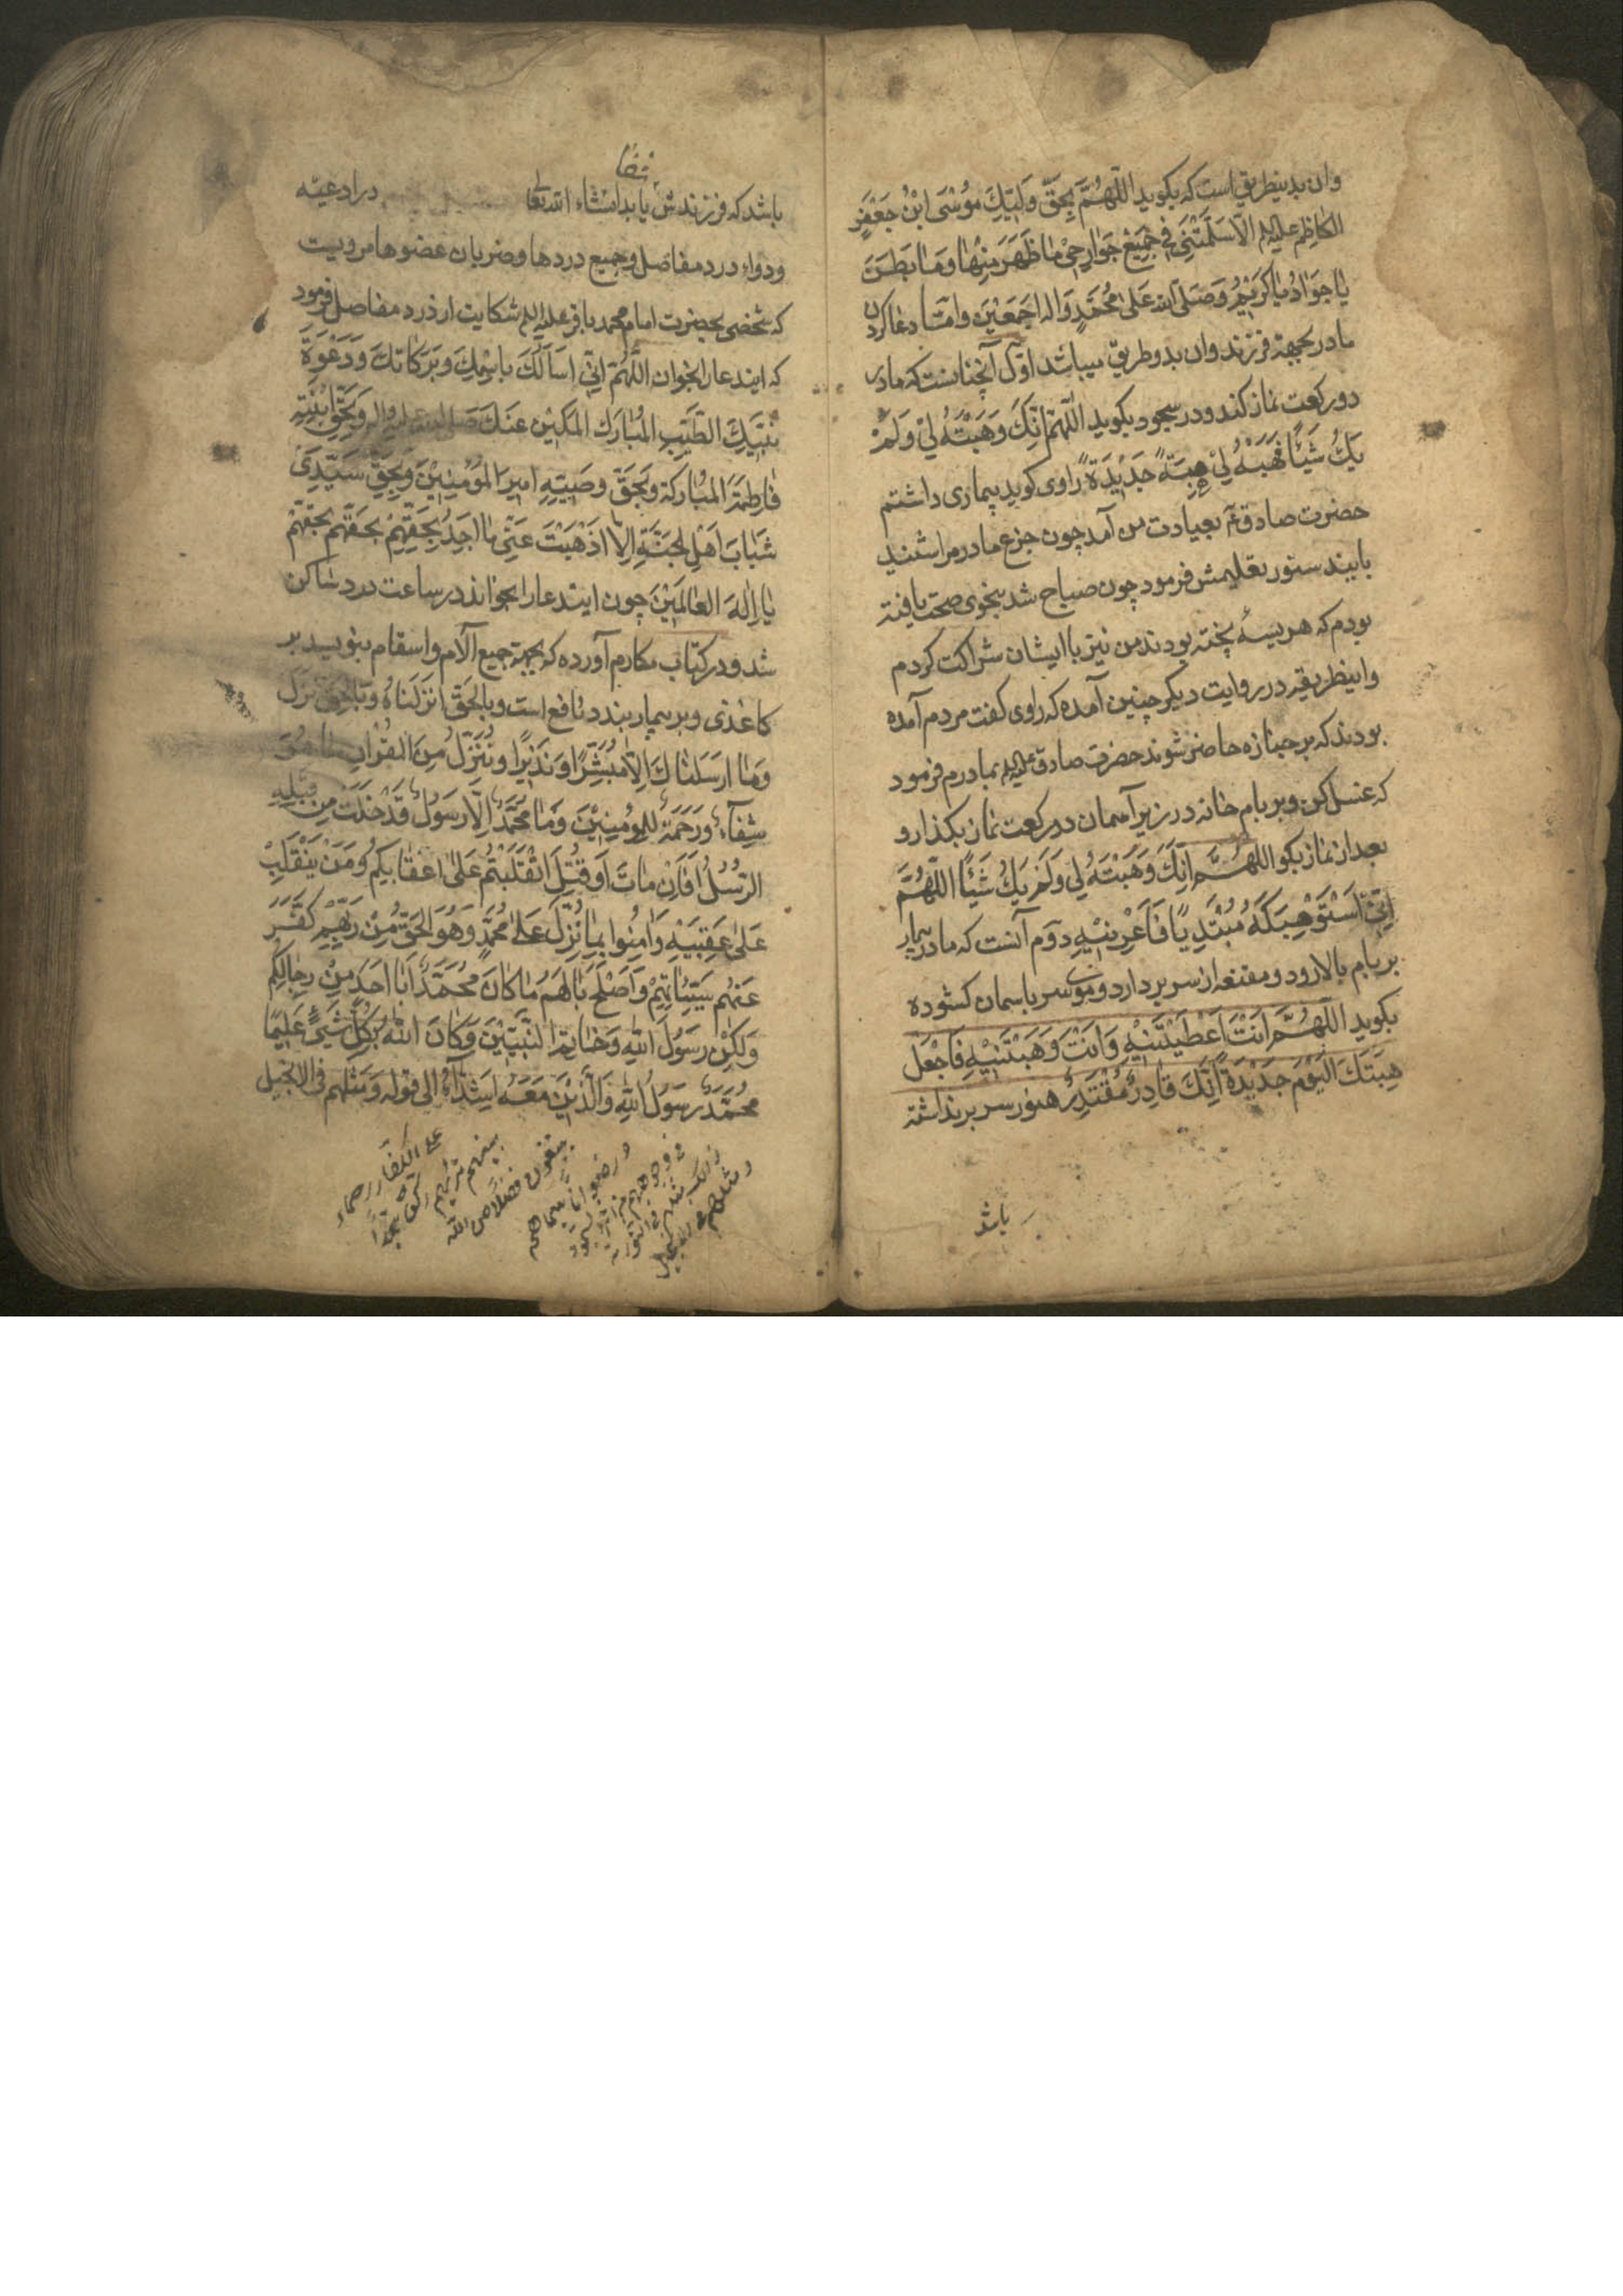 وان بدینطریق است که بکوید اللّهُمَّ بِحَقِّ وَلِیِّكَ مُوْسَی ابْنُ جَعْفَرٍ
الکاظِمِ علیه‌السلم الّا سَلَّمْتَنِی فی جَمِیْعِ جَوارِحِیْ ماظَهَرَ مِنْها وَمَا بَطَنَ
یا جَوادُ یا کَرِیْمُ وَصَلّی الله عَلی مُحَمَّدٍ وَاله اجمَعْیَن وامّا دعا کردن
مادر بجهة فرزند وان بدو طریق میباشد اوّل آنچنانست که مادر
دو رکعت نماز کند ودر سجود بکوید اللّهمّ اِنَّكَ وَهَبْتَهُ لِیْ وَلَمْ
یَكُ شَیْئًا فَهَبْهُ لِیْ هِبَةً جَدِیْدَةً راوی کوید بیماری داشتم
حضرت صادق ع بعیادت من آمد چون جزع مادر مرا شنید
باین دستور تعلیمش فرمود چون صباح شد بنحوی صحت یافته
بودم که هریسهٔ پخته بودند من نیز با ایشان شراکت کردم
واینطریقه در روایت دیکر چنین آمده که راوی کفت مردم آمده
بودند که بر جنازه حاضر شوند حضرت صادق علیه‌السلم بمادرم فرمود
که غسل کن و بر بام خانه در زیر آسمان دو رکعت نماز بکذار و
بعد از نماز بکو اللهُمَّ اِنَّكَ وَهَبْتَهُ لِی وَلَمْ یَكُ شَیْئًا اللّهُمَّ
اِنِّیْ اَسْتَوْهِبُكَهُ مُبْتَدِیًا فَاَعِرْنِیْهِ دوّم آنست که مادر بیمار
بر بام بالا رود ومقنعه از سر بردارد وموی سر باسمان کشوده
بکوید اللّهُمَّ اَنْتَ اَعْطَیْتَنِیْهِ وَاَنْتَ وَهَبْتَنِیْهِ فَاجْعَلْ
هِبَتَكَ الیَوْمَ جَدْیْدَةً اِنَّكَ قادِرٌ مُقْتَدِرٌ هنوز سر بر نداشته
باشد
شفا
باشد که فرزندش یابد انشاء الله تعالی درادعیّه
ودواء درد مفاصل وجمیع دردها وضربان عضوها مرویست
که شخصی بحضرت امام محمد باقر علیه‌السلم شکایت از درد مفاصل فرمود
که ایندعا را بخوان اللَّهُمَّ اِنِّی اَسْاَلُكَ باسْمِكَ وبَرَکاتِكَ وَدَعْوَةِ
نَبِیِّكَ الطَّیِّبِ المُبارَكِ المَکِیْنِ عِنْدَكَ صَلی الله علیه واله وَبِحَقِّ ابْنَتِهِ
فاطِمَةَ المُبارَکَة وبَحَقِّ وصَیِّهِ امِیرَ المُوْمِنِیْنَ وَبِحَقِّ سَیِّدَیْ
شَبابِ اَهْلِ الجَنَّةِ اِلّا اَذْهَبْتَ عَنِّی ما اجِدُ بِحَقِّهِمْ بحَقّهم بحَقّهمْ
یا اِلهَ العالَمِیْنَ چون ایندعا را بخواند در ساعت درد ساکن
شد ودر کتاب مکارم آورده که بجهة جمیع آلام واسقام بنویسد بر
کاغذی وبر بیمار بندد نافع است وبالحَقّ اَنْزَلْناهُ وَبِالحَقّ نَزَلَ
وَما ارَسَلْناكَ اِلّا مُبَشِّرًا وَنَذیْرًا ونُنَزِّلُ مِنَ القُرْانِ ما هُوَ
شِفآءٌ وَرَحْمَةٌ لِلْمُوْمِنِیْنَ وَمَا مُحَمَّدٌ اِلّا رَسُولٌ قَدْ خَلَتْ مِن قَبْلِهِ
الرُّسُلُ اَفَاِنْ ماتَ اَو قُتِلَ انْقَلَبْتُمْ عَلی اعْقابِکُمْ وَمَنْ یَنْقَلِبْ
عَلی عَقِبَیْهِ وَامِنُوا بِما نُزِّلَ عَلی مُحَمَّدٍ وَهُوَ الحَقُّ مِنْ رَبِّهِمْ کَفَّرَ
عَنْهُمْ سَیِّئاتِهِمْ وَاَصْلَحَ بالَهُمْ ما کانَ مُحَمَّدٌ اَبا احَدٍ مِنْ رِجالِکُمْ
وَلکِنْ رَسُولَ اللهِ وَخاتَمَ النَّبِیِّیْنَ وَکانَ اللهُ بِکُلِّ شَیْءٍ عَلِیْمًا
مُحَمَّدٌ رَسُولُ اللهِ وَالَّذْیْنَ مَعَهُ اَشِدّآءُ الی قوله وَمَثَلُهم فی الانجیل
علی الکفار رحماء
بینهم تریهم رکعا سجدا
یبتغون فضلا من الله
ورضوانا سیماهم
فی وجوههم من اثر السجود
ذلك مثلهم فی التوریة
ومثلهم فی الانجیل